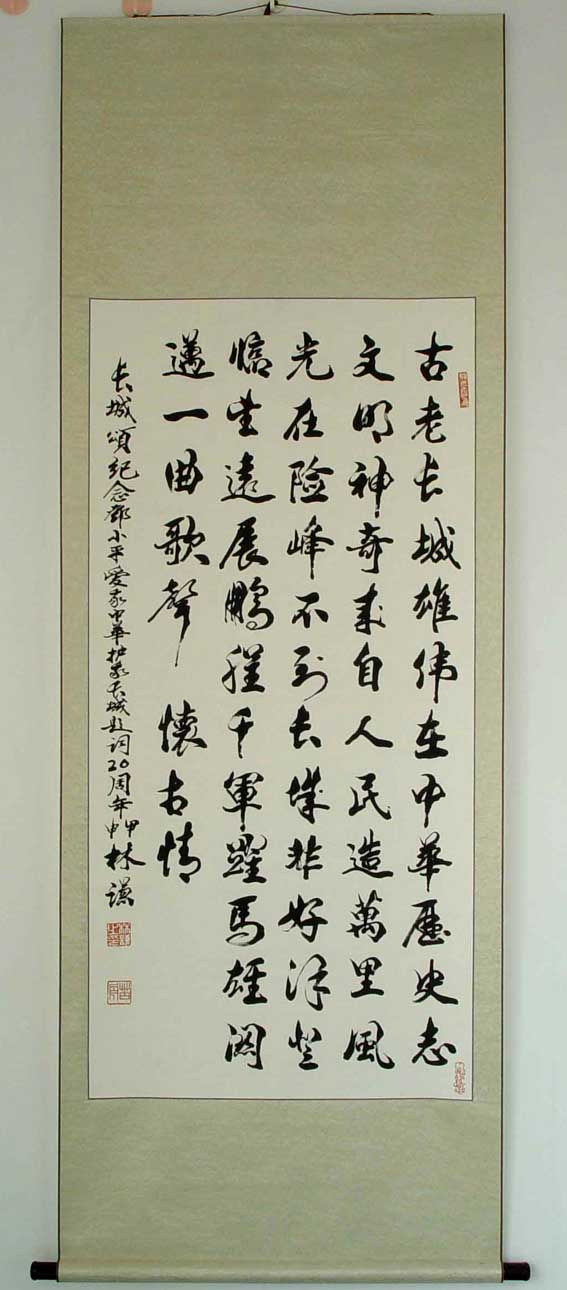 古老长城雄伟在中華歷史志
文明神奇来自人民造萬里風
光在险峰不到长城非好汉登
臨望遠展鹏程千軍躍馬雄関
邁一曲歌聲 懷古情
长城頌纪念鄧小平爱我中華护我长城题词20周年甲申林谦